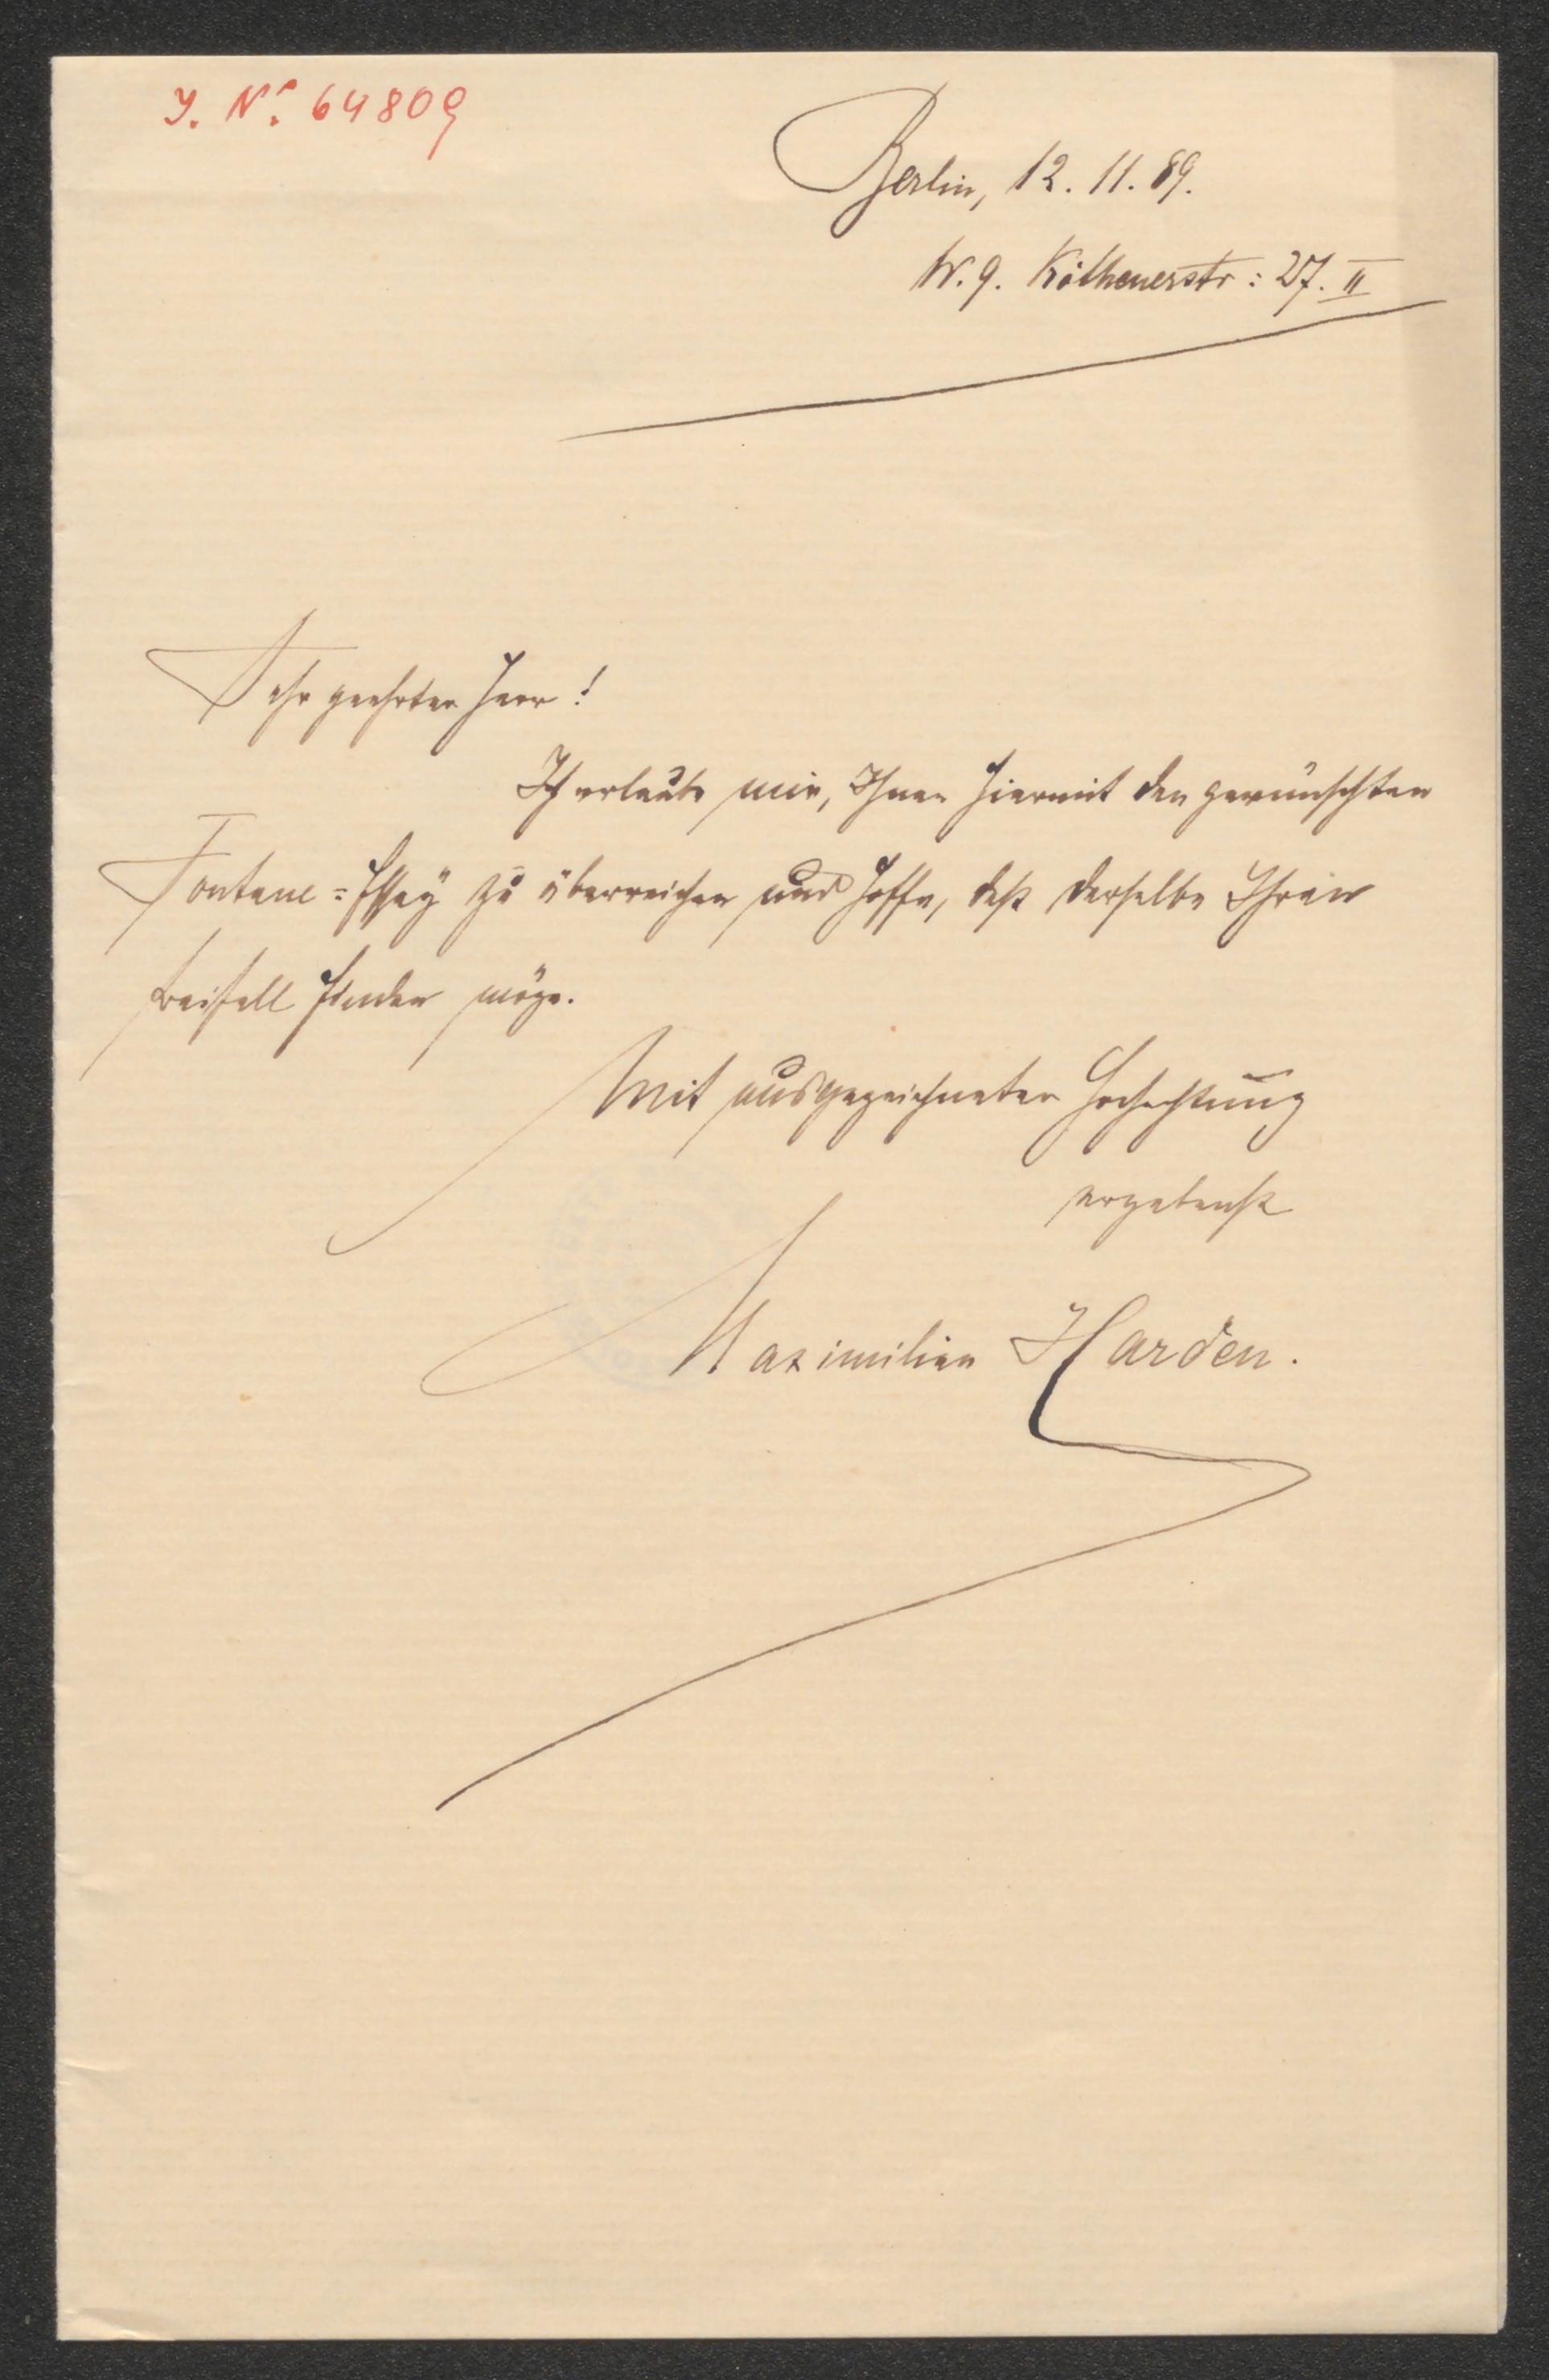 J. No. 64809
Berlin, 12. 11. 89.
W. 9. Köthenerstr: 27. II
Sehr geehrter Herr!
Ich erlaube mir, Ihnen hiermit den gewünschten
Fontane=Essay zu überreichen und hoffe, daß derselbe Ihren
Beifall finden möge.
Mit ausgezeichneter Hochachtung
ergebenst
Maximilian Harden.